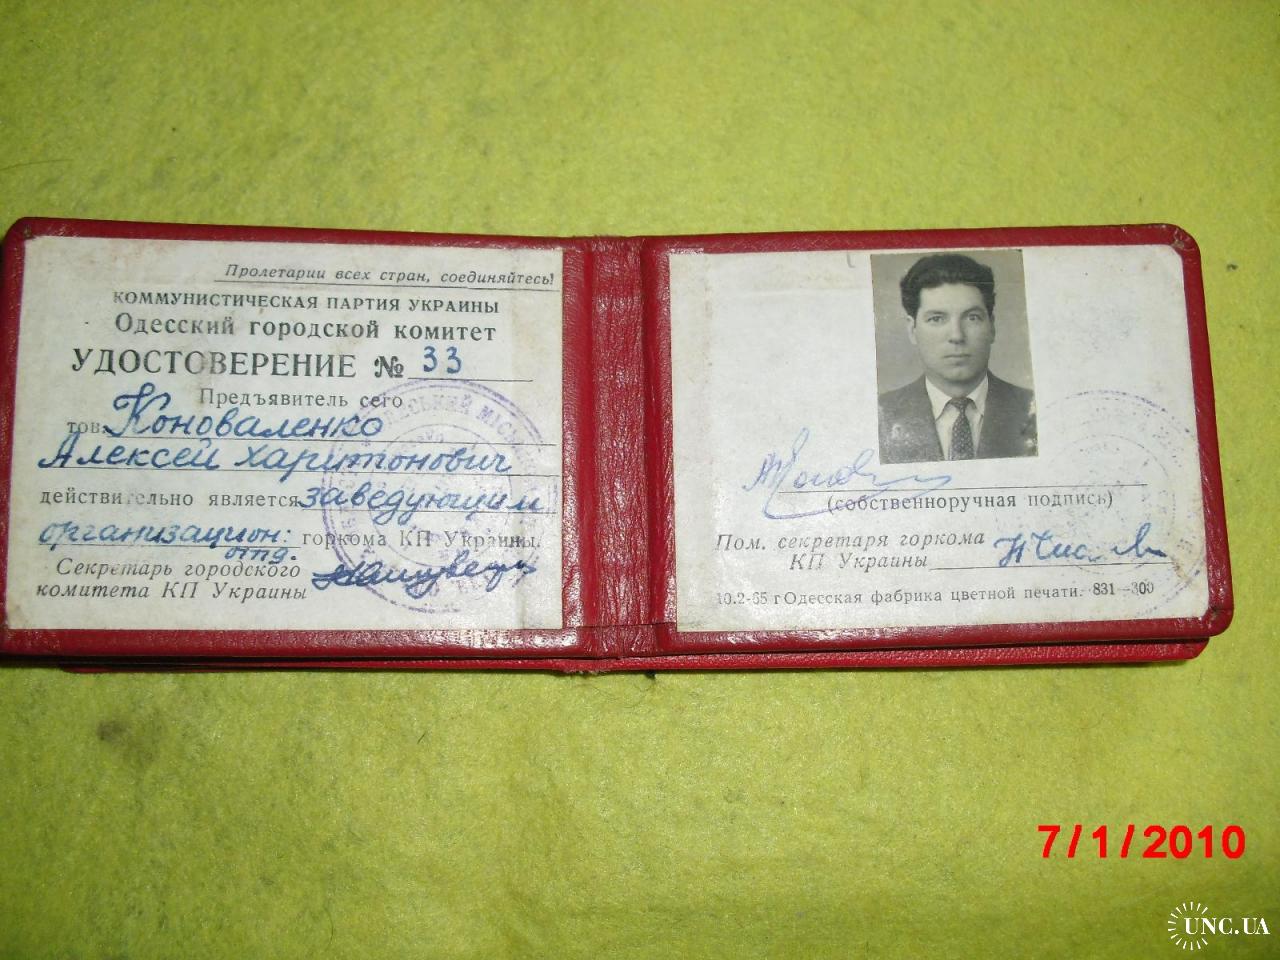 Пролетарии всех стран, соединяйтесь!
КОММУНИСТИЧЕСКАЯ ПАРТИЯ УКРАИНЫ
Одесский городской комитет
УДОСТОВЕРЕНИЕ № 33
Предъявитель сего
тов. Коноваленко
Алексей Харитонович
действительно является заведующим
организацион: отд. горкома КП Украины.
Секретарь городского
комитета КП Украины
(собственноручная подпись)
Пом. секретаря горкома
КП Украины
10.2-65 г Одесская фабрика цветной печати. 831—300
7/1/2010
UNC.UA